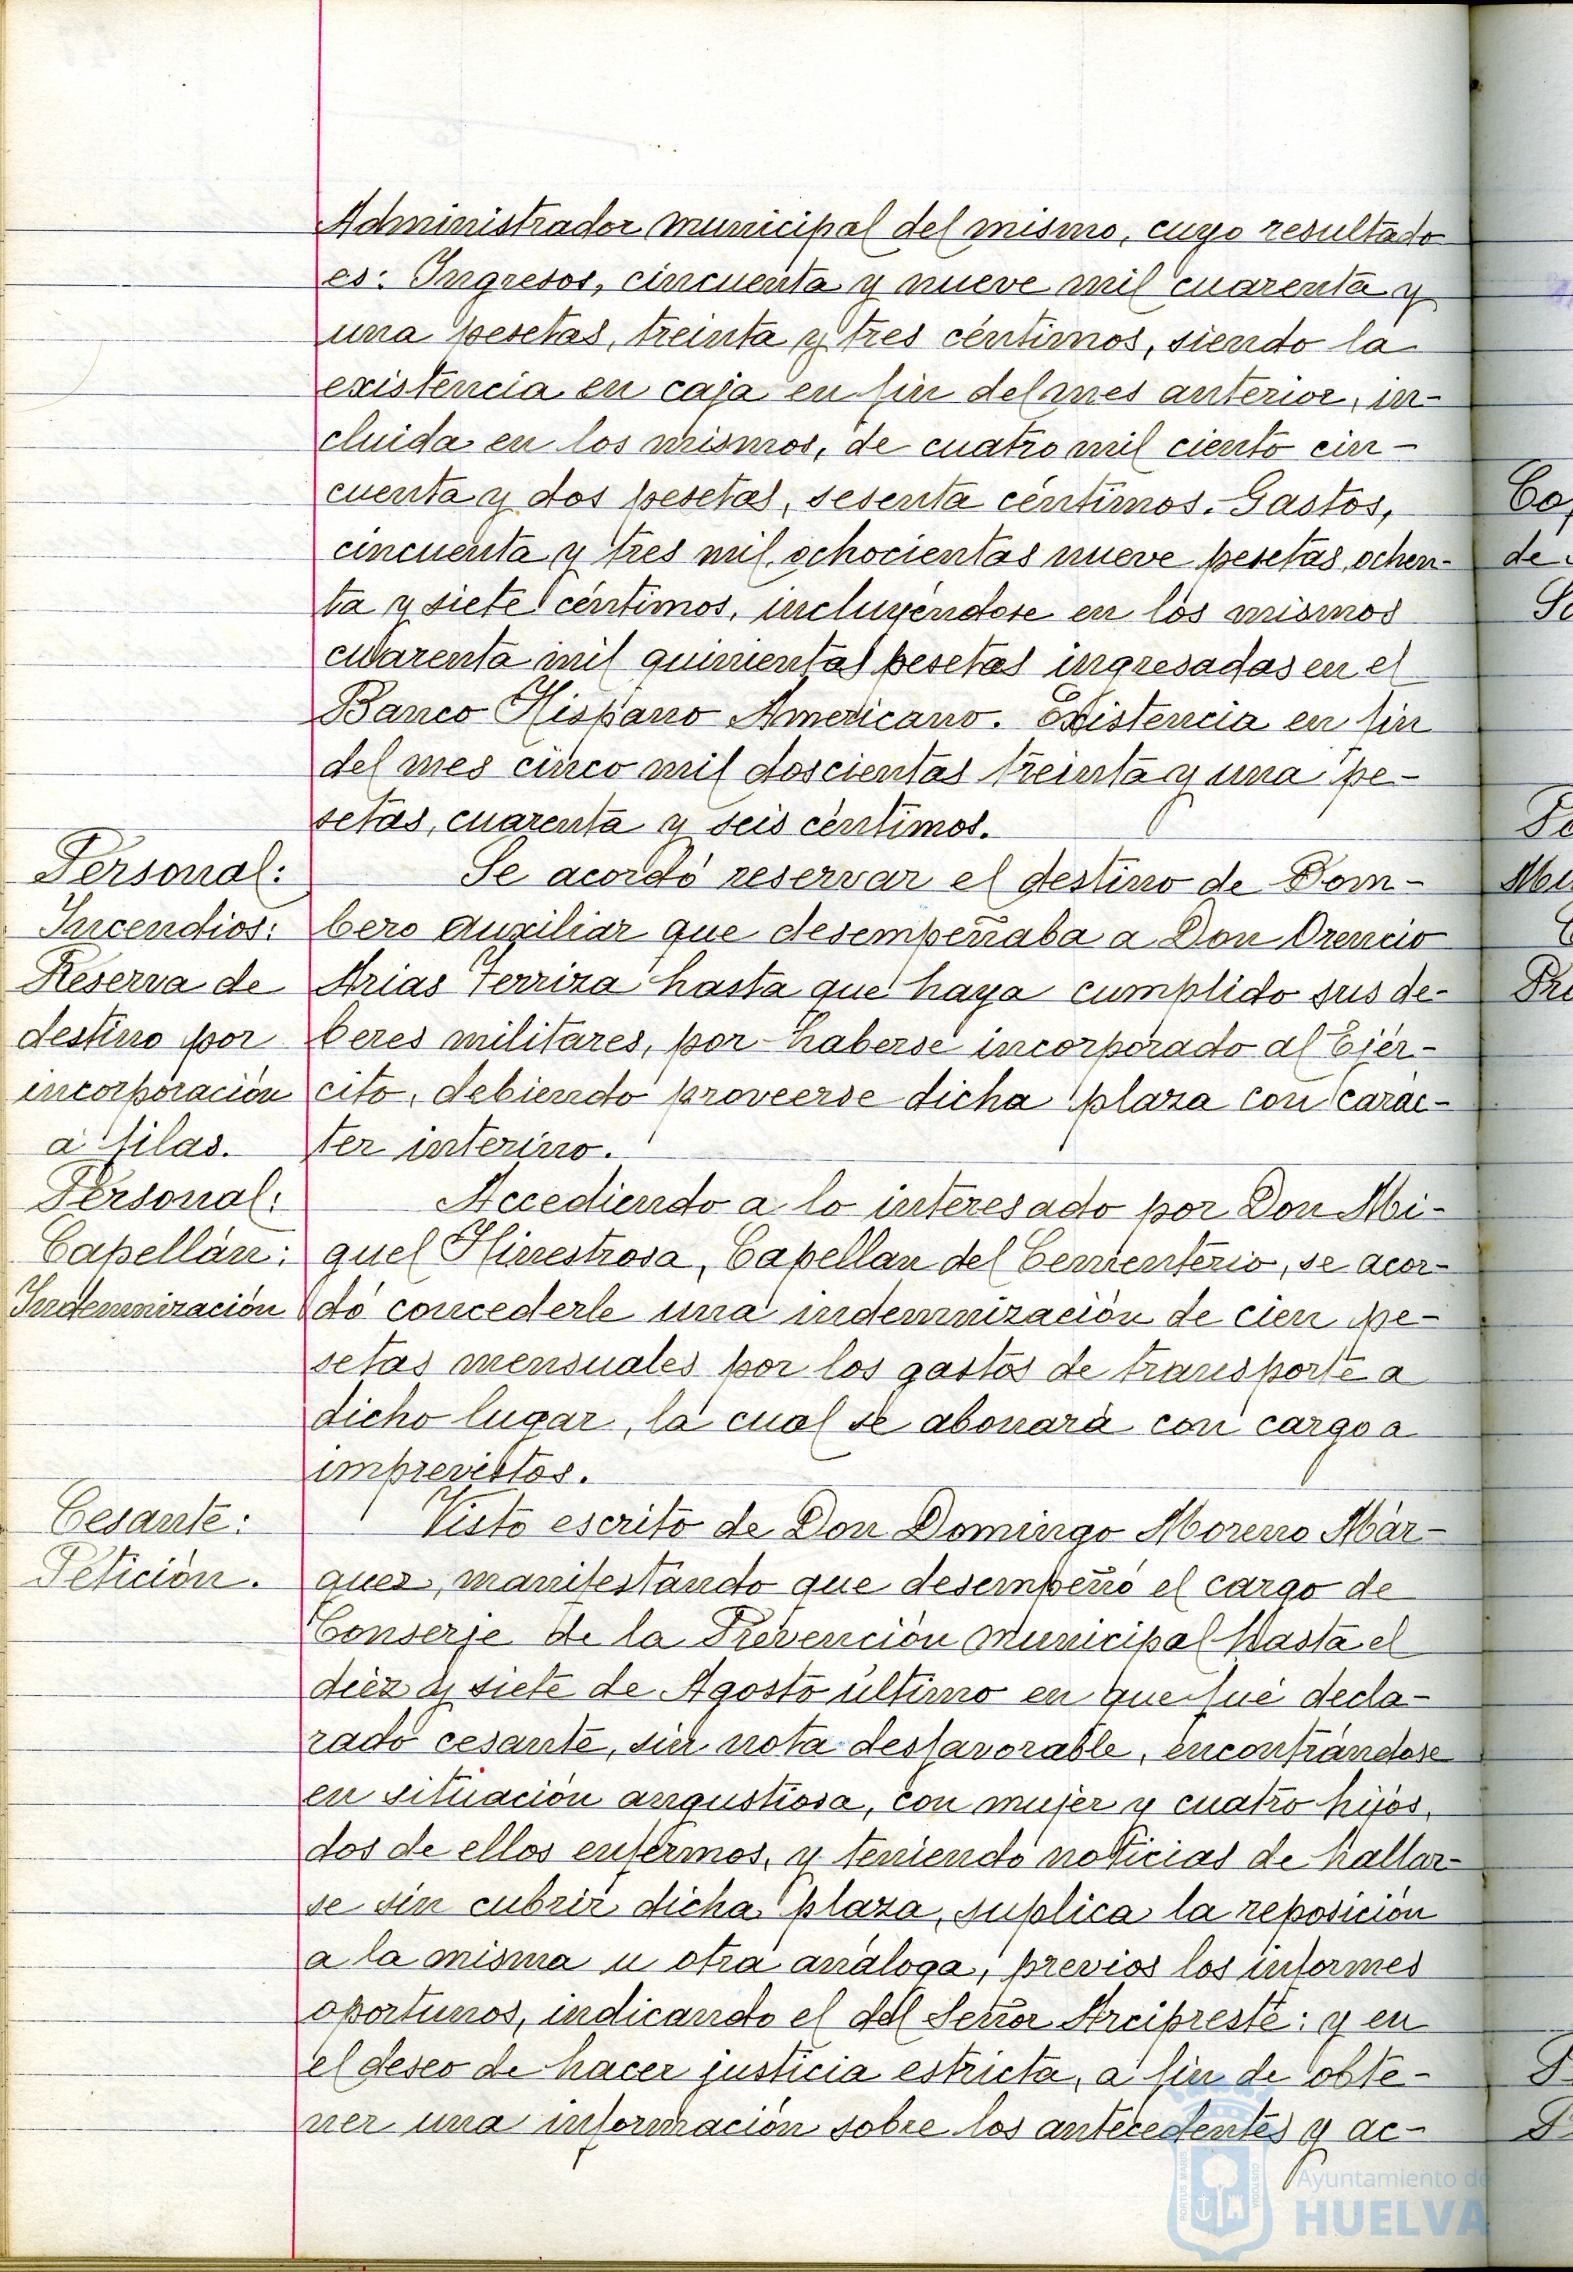 Administrador municipal del mismo, cuyo resultado
es: Ingresos, cincuenta y nueve mil cuarenta y
una pesetas, treinta y tres céntimos, siendo la
existencia en caja en fin del mes anterior, in-
cluida en los mismos, de cuatro mil ciento cin-
cuenta y dos pesetas, sesenta céntimos.- Gastos,
cincuenta y tres mil ochocientas nueve pesetas, ochen-
ta y siete céntimos, incluyéndose en los mismos
cuarenta mil quinientas pesetas ingresadas en el
Banco Hispano Americano. Existencia en fin
del mes cinco mil doscientas treinta y una pe-
setas, cuarenta y seis céntimos.
Personal:
Incendios:
Reserva de
destino por
incorporación
a filas.
Se acordó reservar el destino de Bom-
bero Auxiliar que desempeñaba a Don Orencio
Arias Terriza hasta que haya cumplido sus de-
beres militares, por haberse incorporado al Ejér-
cito, debiendo proveerse dicha plaza con carác-
ter interino.
Personal:
Capellán:
Indemnización
Accediendo a lo interesado por Don Mi-
guel Hinestrosa, Capellan del Cementerio, se acor-
dó concederle una indemnización de cien pe-
setas mensuales por los gastos de transporte a
dicho lugar, la cual se abonará con cargo a
imprevistos.
Cesante:
Petición.
Visto escrito de Don Domingo Moreno Már-
quez, manifestando que desempeñó el cargo de
Conserje de la Prevención Municipal hasta el
diez y siete de Agosto último en que fué decla-
rado cesante, sin nota desfavorable, encontrándose
en situación angustiosa, con mujer y cuatro hijos,
dos de ellos enfermos, y teniendo noticias de hallar-
se sin cubrir dicha plaza, suplica la reposición
a la misma u otra análoga, previos los informes
oportunos, indicando el del Señor Arcipreste; y en
el deseo de hacer justicia estricta, a fin de obte-
ner una información sobre los antecedentes y ac-
Ayuntamiento de
HUELVA